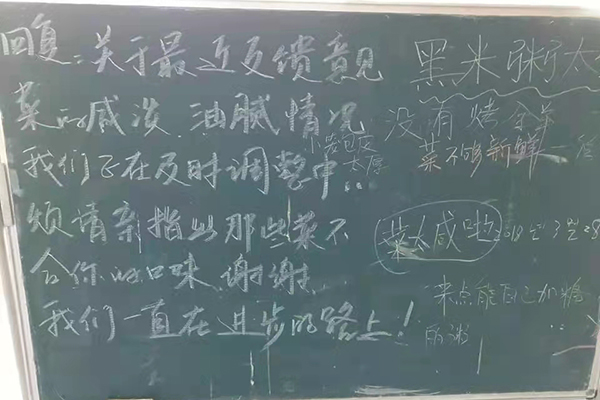 回复:关于最近反馈意见
菜的咸淡、油腻情况
我们正在及时调整中..
烦请亲指出那些菜不
合你的口味.谢谢！
我们一直在进步的路上！
黑米粥太
没有烤全羊
小笼包皮
太厚
菜不够新鲜
菜太咸
来点能自己加糖
的粥